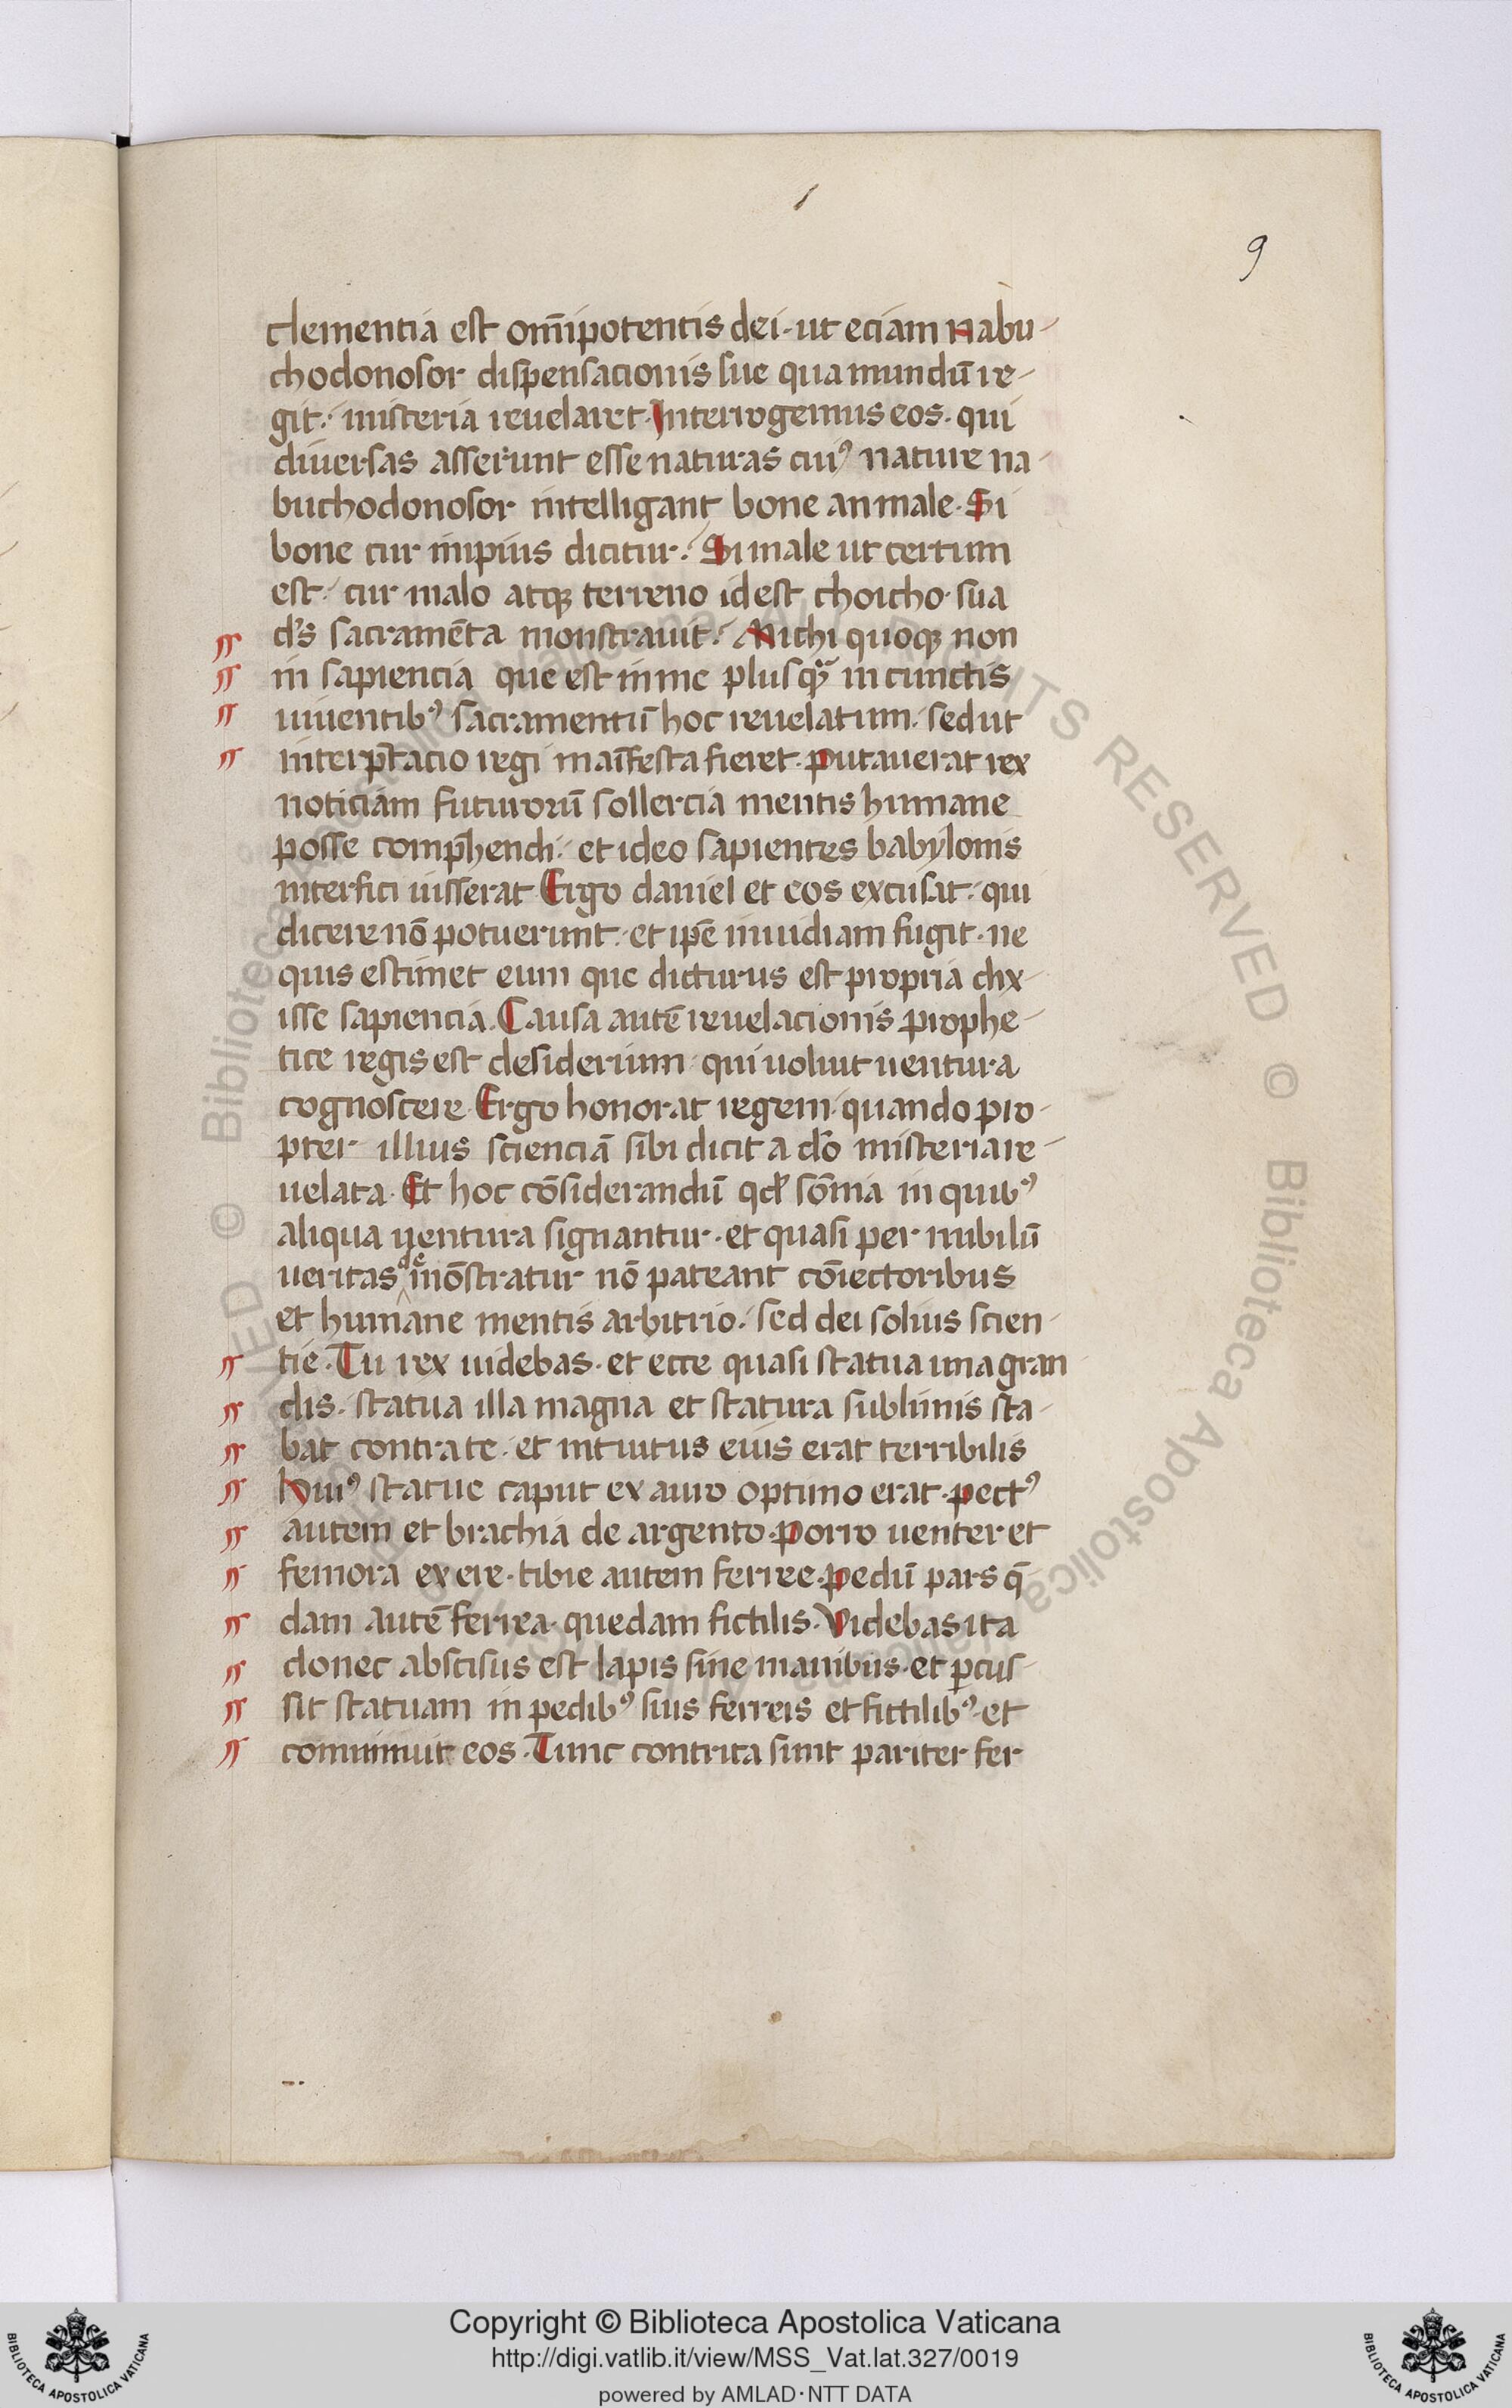 9
clementia est om̄ipotentis dei · ut eciam nabu-
chodonosor dispensacionis sue qua mundū re-
git · misteria reuelaret · Interrogemus eos · qui
diuersas asserunt esse naturas cuiꝰ nature na-
buchodonosor intelligant bone an male · Si
bone cur impius dicitur · Si male ut certum
est · cur malo atqꝫ terreno id est choicho · sua
d's sacramēta monstrauit · Michi quoqꝫ non
in sapiencia que est in me plus qꝫ̄ in cunctis
uiuentibꝰ sacramentū hoc reuelatum · sed ut
interp̄tacio regi maīfesta fieret · putauerat rex
noticiam futurorū sollercia mentis humane
posse comp̄hendi · et ideo sapientes babylonis
interfici iusserat Ergo daniel et eos excusat · qui
dicere nō potuerunt · et ip̄e inuidiam fugit · ne
quis estimet eum que dicturus est propria dix-
isse sapiencia · Causa autē reuelacionis prophe-
tice regis est desiderium · qui uoluit uentura
cognoscere · Ergo honorat regem · quando pro-
pter illius scienciā sibi dicit a d̄o misteria re-
uelata · Et hoc cōsiderandū qd̓ sōmia in quibꝰ
aliqua uentura signantur · et quasi per nubilū
ueritas de mōstratur nō pateant cōiectoribus
et humane mentis arbitrio · sed dei solius scien-
tie · Tu rex uidebas · et ecce quasi statua una gran
dis · statua illa magna et statura sublimis sta-
bat contra te · et intuitus eius erat terribilis
huiꝰ statue caput ex auro optimo erat · pectꝰ
autem et brachia de argento · porro uenter et
femora ex ere · tibie autem ferree · pedū pars q̄
dam autē ferrea · quedam fictilis · Videbas ita
donec abscisus est lapis sine manibus · et ꝑcus-
sit statuam in pedibꝰ suis ferreis et fictilibꝰ · et
cominuit eos · Tunc contrita sunt pariter fer
© Biblioteca Apostolica Vaticana
RIGHTS RESERVED
Copyright © Biblioteca Apostolica Vaticana
http://digi.vatlib.it/view/MSS_Vat.lat.327/0019
powered by AMLAD·NTT DATA
BIBLIOTECA APOSTOLICA VATICANA
BIBLIOTECA APOSTOLICA VATICANA